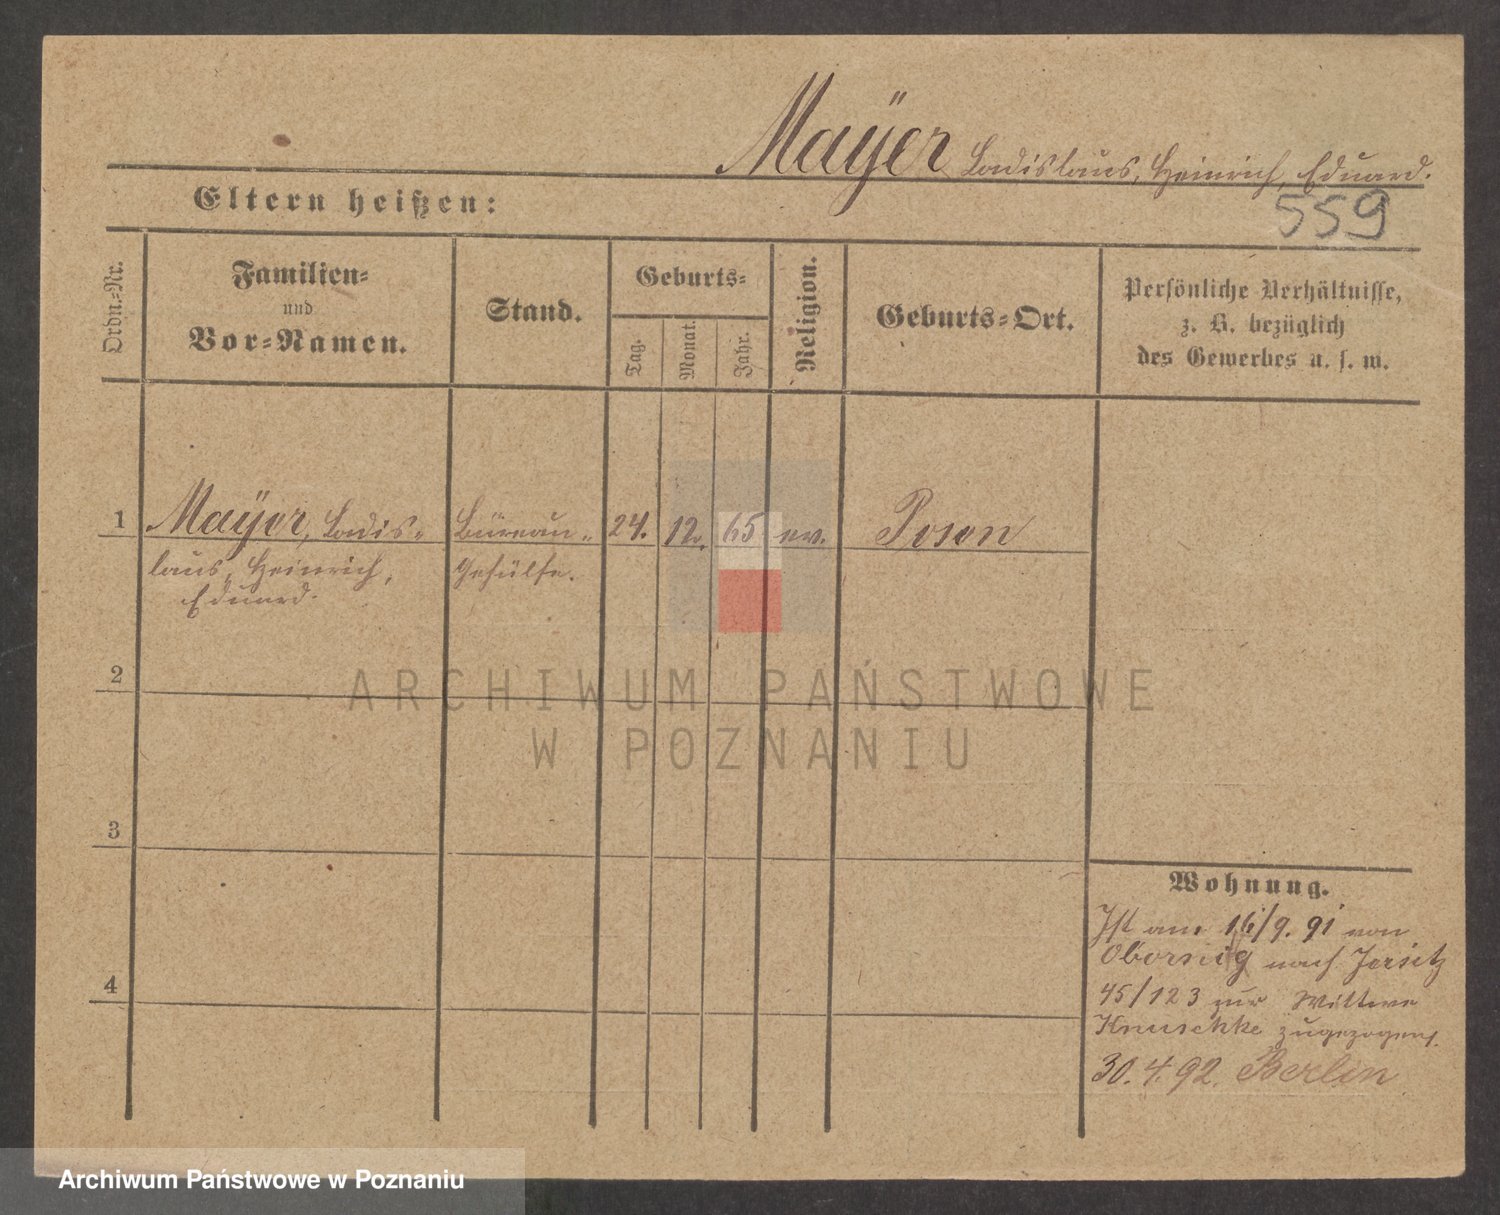 Mayer Ladislaus, Heinrich, Eduard.
559
Eltern heißen:
Ordn.-Nr.
Familien-
und
Vor-Namen.
Stand.
Geburts-
Tag.
Monat.
Jahr.
Religion.
Geburts-Ort.
Persönliche Verhältnisse,
z. B. bezüglich
des Gewerbes u. s. w.
1 Mayer, Ladis- Büreau- 24. 12. 65 ev. Posen
laus, Heinrich, Gehülfe.
Eduard.
2
ARCHIWUM PAŃSTWOWE
W POZNANIU
3
4
Wohnung.
Ist am 16/9. 91 von
Obornig nach Jersitz
45/123 zur Wittwe
Knuschke zugezogen.
30. 4. 92. Berlin
Archiwum Państwowe w Poznaniu